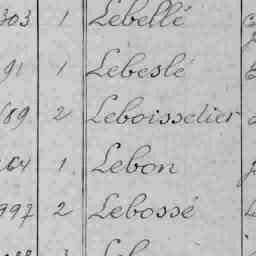 303 1 Lebellé
91 1 Lebeslé
189 2 Leboisselier
164 1 Lebon
997 2 Lebossé